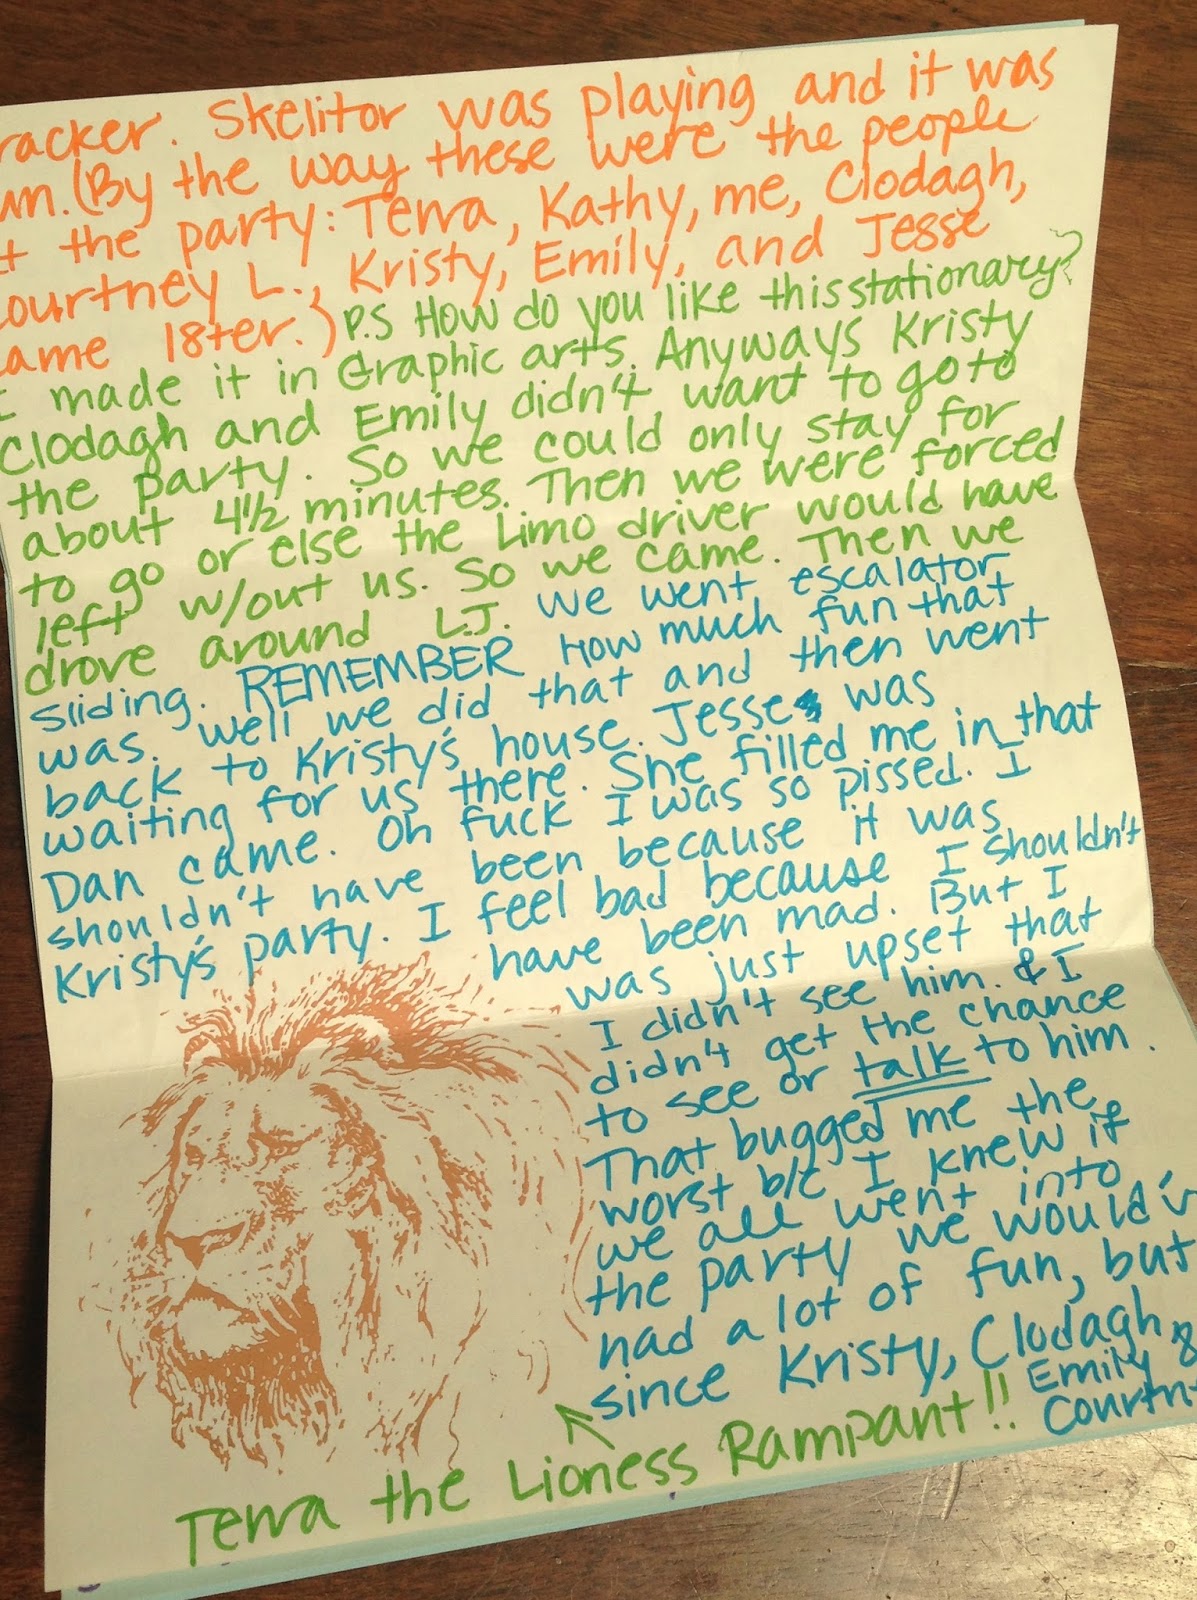 racker. Skelitor was playing and it was
un. (By the way these were the people
t the party: Terra, Kathy, me, Clodagh,
ourtney L., Kristy, Emily, and Jesse
ame l8ter.) P.S How do you like this stationary?
I made it in Graphic arts. Anyways Kristy
Clodagh and Emily didn't want to go to
the party. So we could only stay for
about 4½ minutes. Then we were forced
to go or else the Limo driver would have
left w/out us. So we came. Then we
drove around L.J. We went escalator
sliding. REMEMBER How much fun that
was. Well we did that and then went
back to Kristy's house. Jesse was
waiting for us there. She filled me in that
Dan came. Oh fuck I was so pissed. I
shouldn't have been because it was
Kristy's party. I feel bad because I shouldn't
have been mad. But I
was just upset that
I didn't see him. & I
didn't get the chance
to see or talk to him.
That bugged me the
worst b/c I knew if
we all went into
the party we would'v
had a lot of fun, but
since Kristy, Clodagh,
Emily &
Courtn
Terra the Lioness Rampant!!